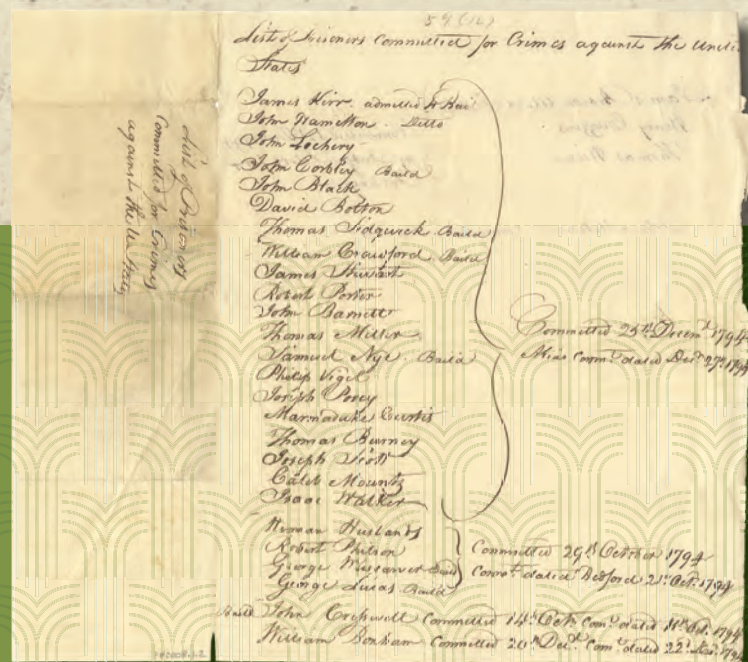 59 (12)
List of Prisoners Committed for Crimes against the United
States
James Kirr. admitted to Bail
John Hamelton. Ditto
John Lochery
John Corbley Baild
John Black
David Bolton
Thomas Sidgwick Baild
William Crawford Baild
James Stewart
Robert Porter
John Barnett
Thomas Miller
Samuel Nye. Baild
Philip Vigel
Joseph Porey
Marmaduke Curtis
Thomas Burney
Joseph Scott
Caleb Mounts
Isaac Walker
Committed 25th Decemr 1794
Comt. dated Decr 27th 1794
Herman Husbands
Robert Philson
George Wiscarver Baild
George Lucas Baild
Committed 29th October 1794
Comt. dated Bedford 21st Octr. 1794
Baild John Criswell Committed 14th Comt. dated
William Bonham Committed 20th Decr. Comt. dated 22d
List of Prisoners
Committed for Crimes
against the U. States